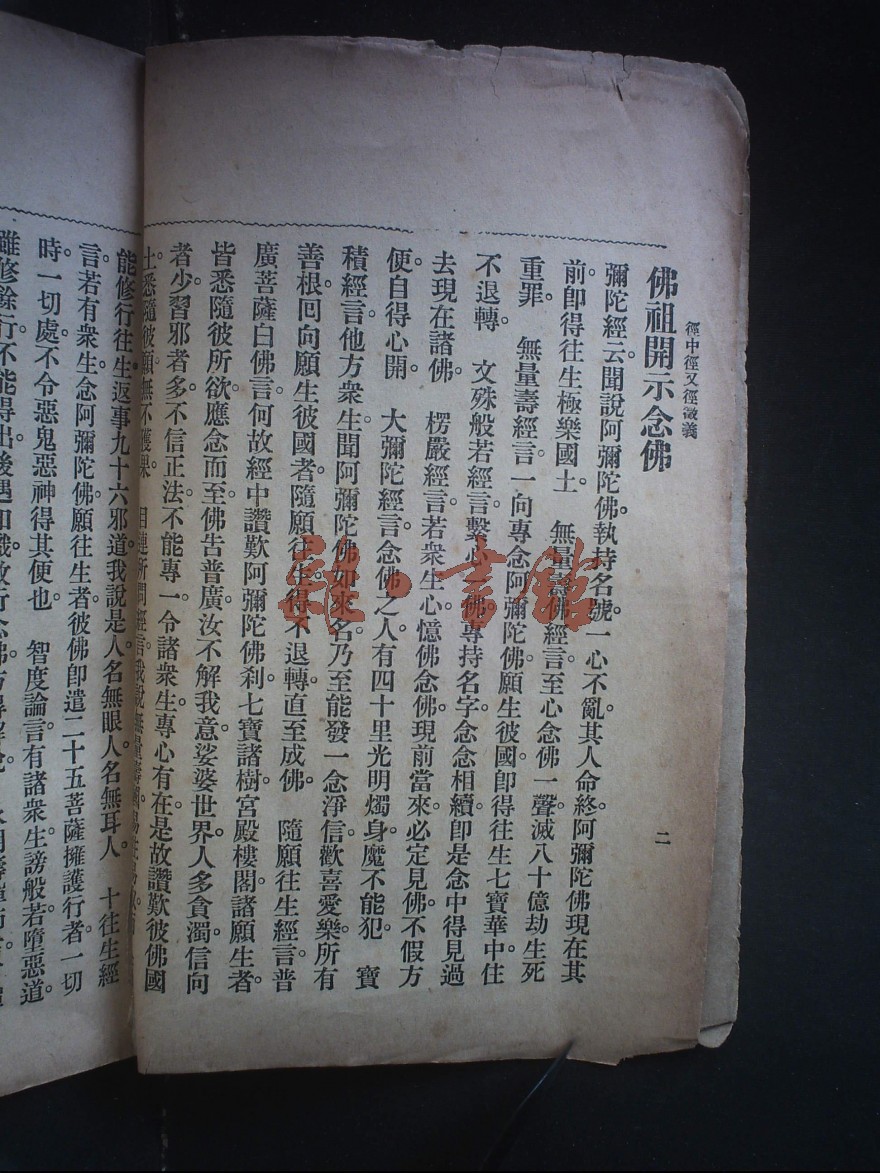 徑中徑又徑徵義
二
佛祖開示念佛
彌陀經云。聞說阿彌陀佛。執持名號。一心不亂。其人命終。阿彌陀佛現在其
前。卽得往生極樂國土。 無量壽佛經言。至心念佛一聲。滅八十億劫生死
重罪。 無量壽經言。一向專念阿彌陀佛。願生彼國。卽得往生七寶華中。住
不退轉。 文殊般若經言。繫心一佛。專持名字。念念相續。卽是念中得見過
去現在諸佛。 楞嚴經言。若衆生心。憶佛念佛。現前當來。必定見佛。不假方
便。自得心開。 大彌陀經言。念佛之人。有四十里光明燭身。魔不能犯。 寶
積經言。他方衆生。聞阿彌陀佛如來名。乃至能發一念淨信。歡喜愛樂。所有
善根回向願生彼國者。隨願往生。得不退轉。直至成佛。 隨願往生經言。普
廣菩薩白佛言。何故經中讚歎阿彌陀佛刹。七寶諸樹宮殿樓閣。諸願生者。
皆悉隨彼所欲應念而至。佛吿普廣。汝不解我意。娑婆世界。人多貪濁。信向
者少。習邪者多。不信正法。不能專一。令諸衆生專心有在。是故讚歎彼佛國
土。悉隨彼願。無不獲果。 目連所問經言。我說無量壽國
能修行往生。返事九十六邪道。我說是人名無眼人。名無耳人。 十往生經
言。若有衆生念阿彌陀佛。願往生者。彼佛卽遣二十五菩薩擁護行者。一切
時。一切處。不令惡鬼惡神得其便也。 智度論言。有諸衆生謗般若墮惡道。
雖修餘行。不能得出。後遇知識敎行念佛。方得解脫。